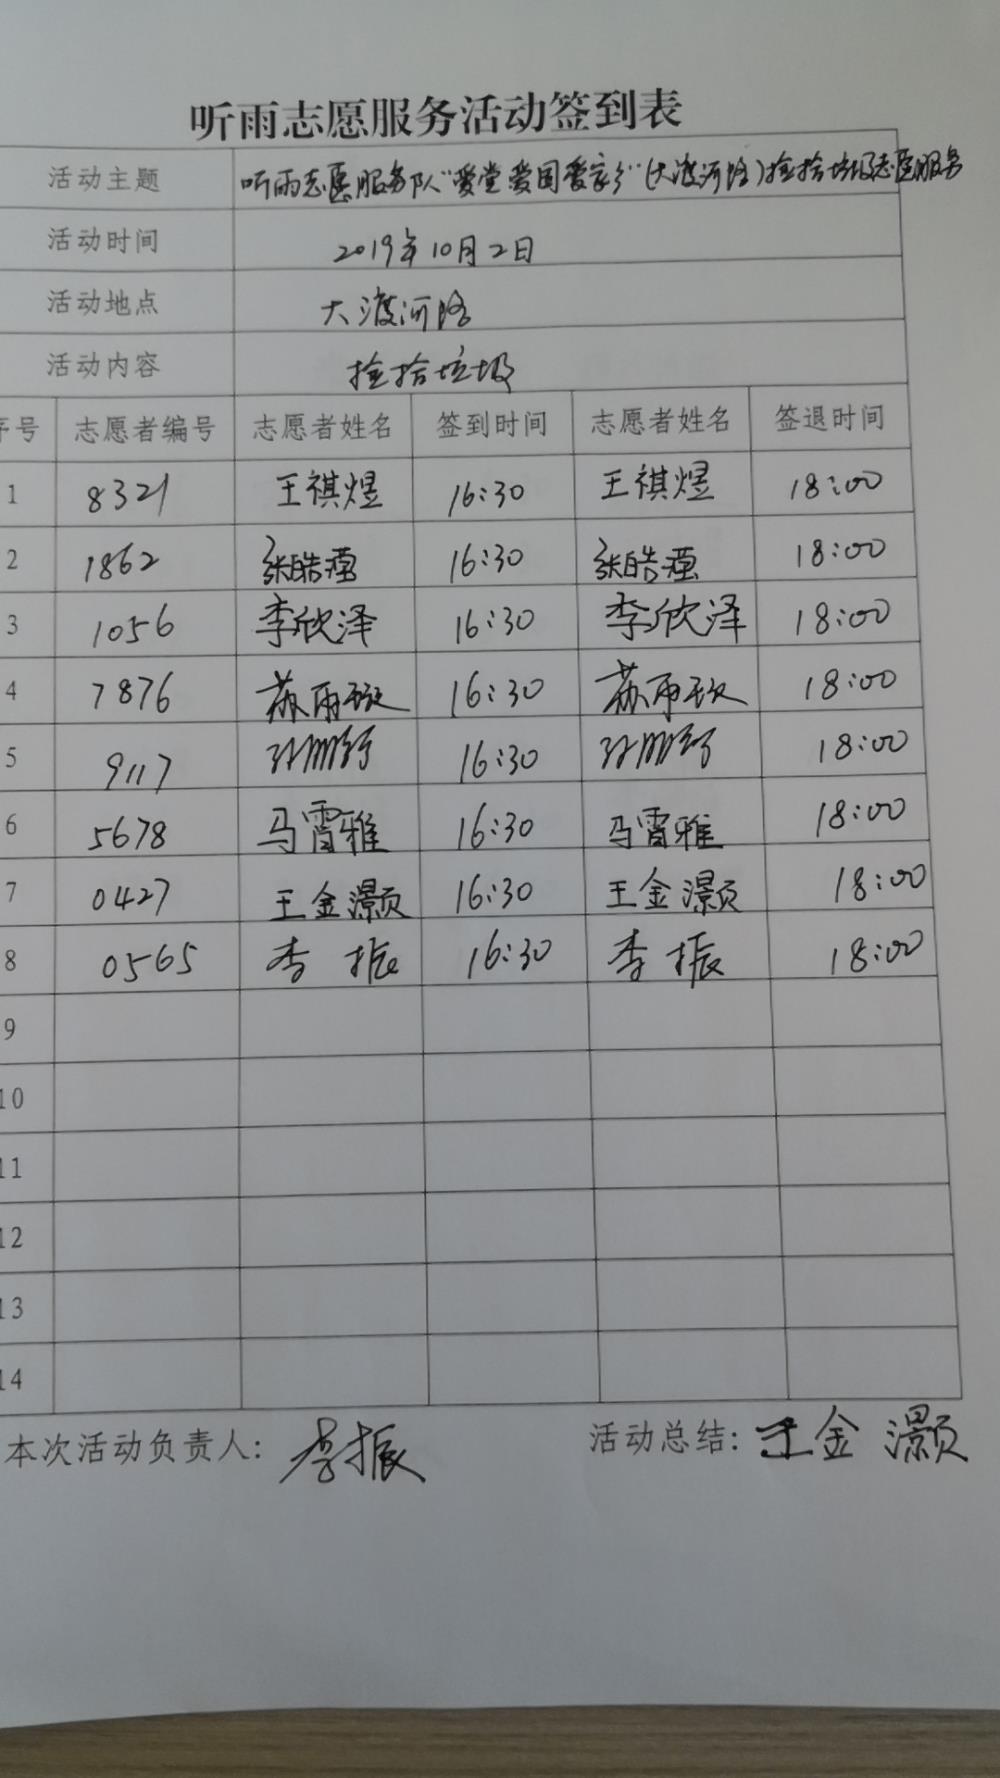 听雨志愿服务活动签到表
活动主题 听雨志愿服务队“爱党爱国爱家乡”(大渡河路)捡拾垃圾志愿服务
活动时间 2019年10月2日
活动地点 大渡河路
活动内容 捡拾垃圾
序号 志愿者编号 志愿者姓名 签到时间 志愿者姓名 签退时间
1 8321 王祺煜 16:30 王祺煜 18:00
2 1862 张皓 16:30 张皓 18:00
3 1056 李欣泽 16:30 李欣泽 18:00
4 7876 苏雨 16:30 苏雨 18:00
5 9117 16:30 18:00
6 5678 马霄雅 16:30 马霄雅 18:00
7 0427 王金灏 16:30 王金灏 18:00
8 0565 李振 16:30 李振 18:00
9
10
11
12
13
14
本次活动负责人: 李振 活动总结: 王金灏